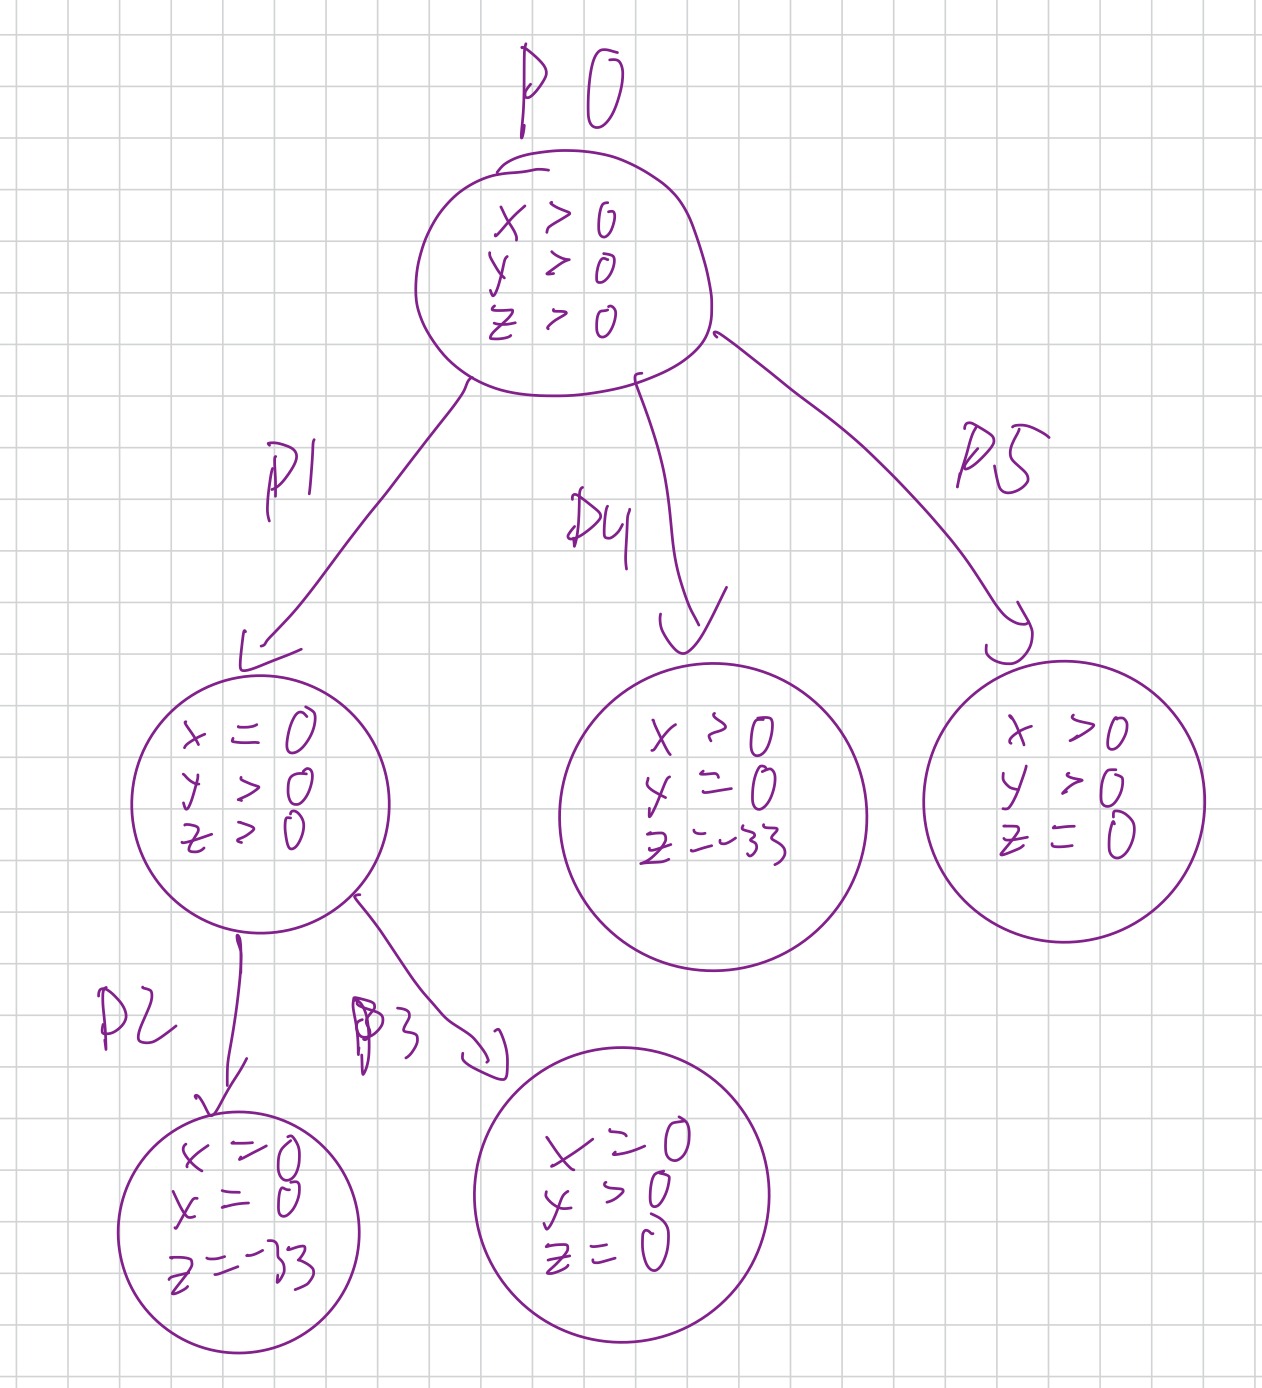 P 0
x > 0
y > 0
z > 0
P1
P4
P5
x = 0
y > 0
z > 0
x > 0
y = 0
z = -33
x > 0
y > 0
z = 0
P2
P3
x = 0
y = 0
z = -33
x = 0
y > 0
z = 0